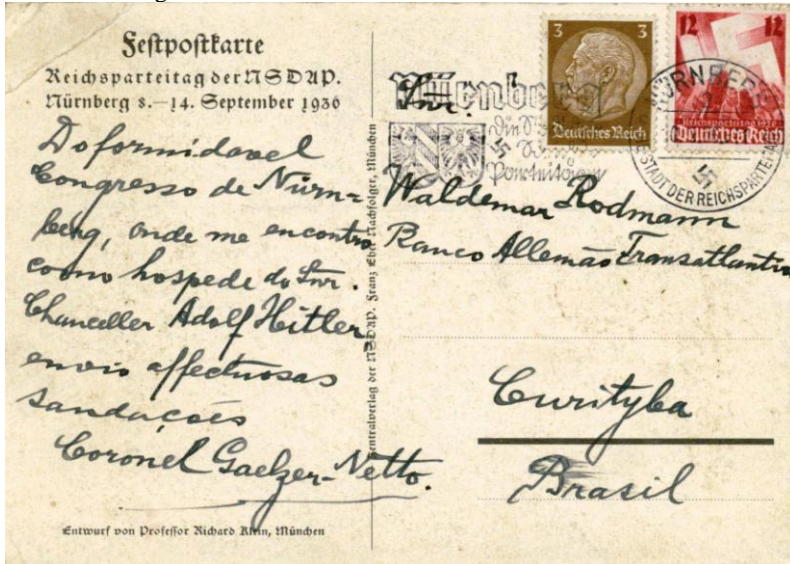 Festpostkarte
Reichsparteitag der NSDAP.
Nürnberg 8.–14. September 1936
Do formidavel
Congresso de Nürn-
berg, onde me encontro
como hospede do Snr.
Chanceller Adolf Hitler,
envio affectuosas
saudações
Coronel Gaelzer-Netto.
Entwurf von Professor Richard Klein, München
Zentralverlag der NSDAP. Franz Eher Nachfolger, München
3 3
Deutsches Reich
12 12
Reichsparteitag 1936
Deutsches Reich
Nürnberg
die Stadt
der
Parteitage
NÜRNBERG
STADT DER REICHSPARTEITAGE
Snr.
Waldemar Rodmann
Banco Allemão Transatlantico
Curityba
Brasil